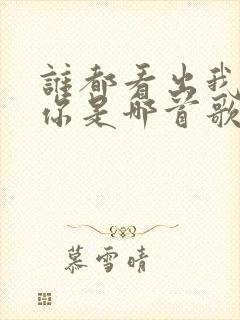 誰都看出我
你是哪首歌
慕雪晴